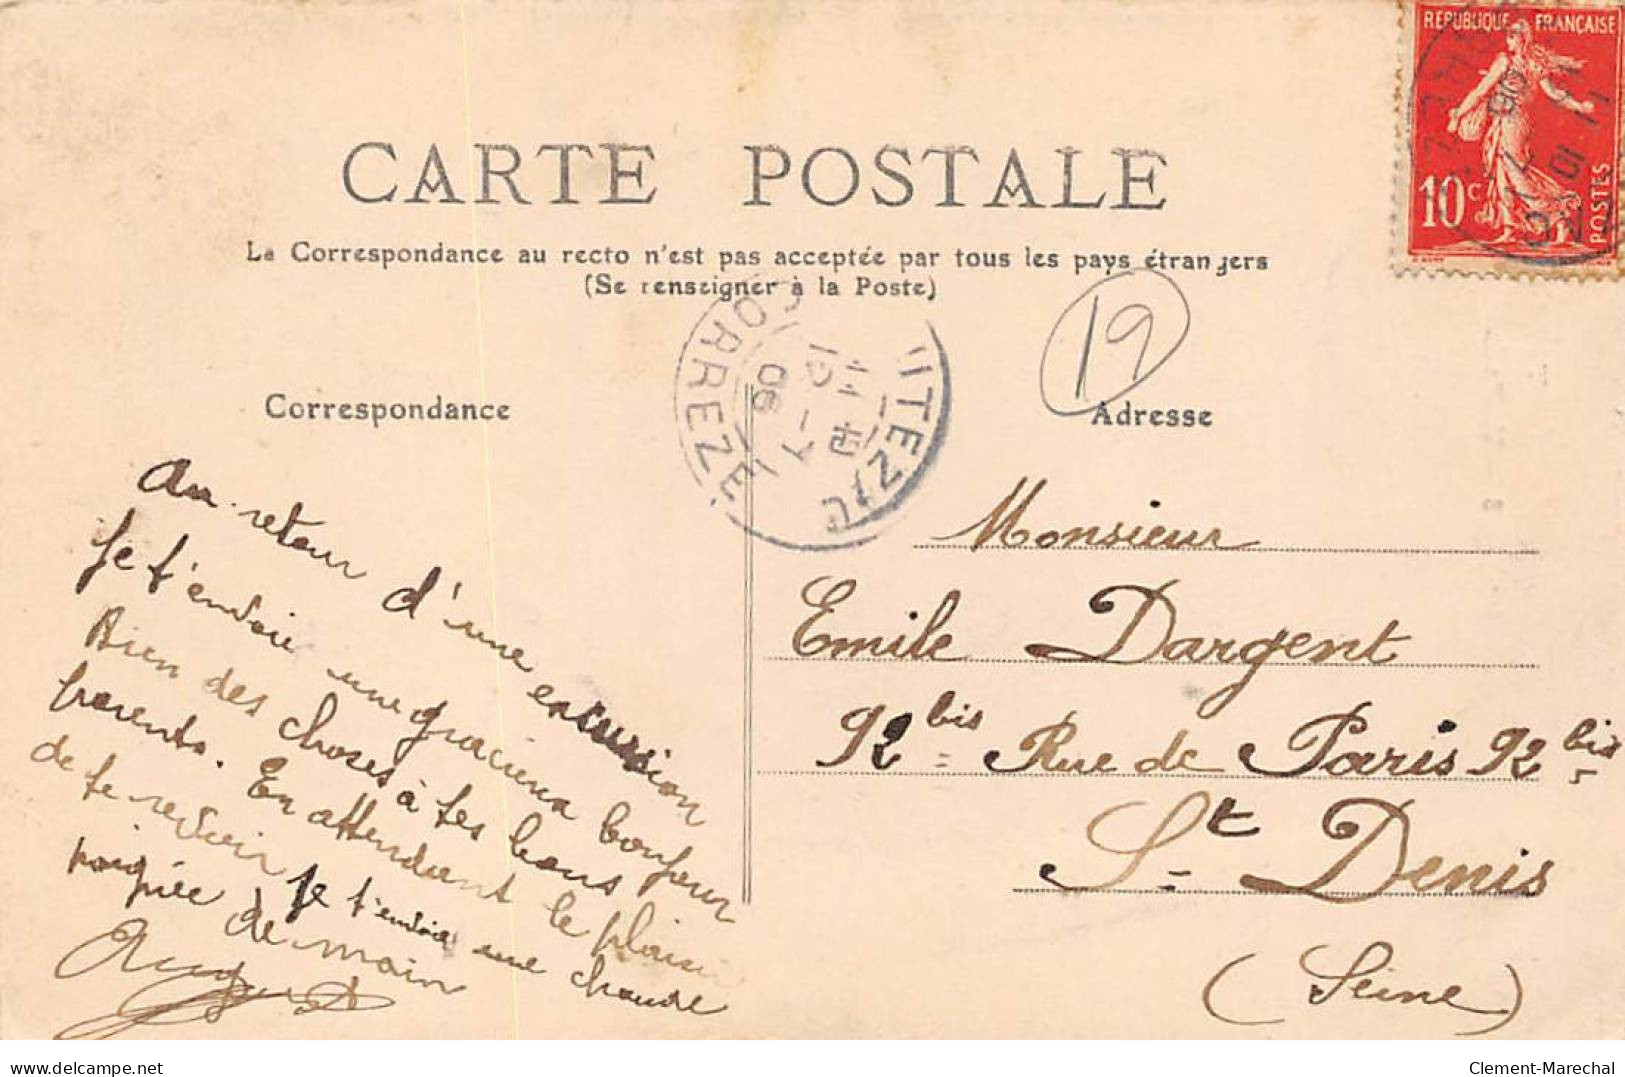 RÉPUBLIQUE FRANÇAISE
10c
POSTES
CARTE POSTALE
La Correspondance au recto n'est pas acceptée par tous les pays étrangers
(Se renseigner à la Poste)
19
CORRÈZE
11 10 - 7 06
Correspondance
Adresse
Au retour d'une excursion
Je t'envoie une gracieux bonjour
Bien des choses à tes bons
parents. En attendant le plaisir
de te revoir je t'envoie une chaude
poignée de main
August
Monsieur
Emile Dargent
92 bis Rue de Paris 92 bis
St Denis
(Seine)
delcampe.net
Clement-Marechal